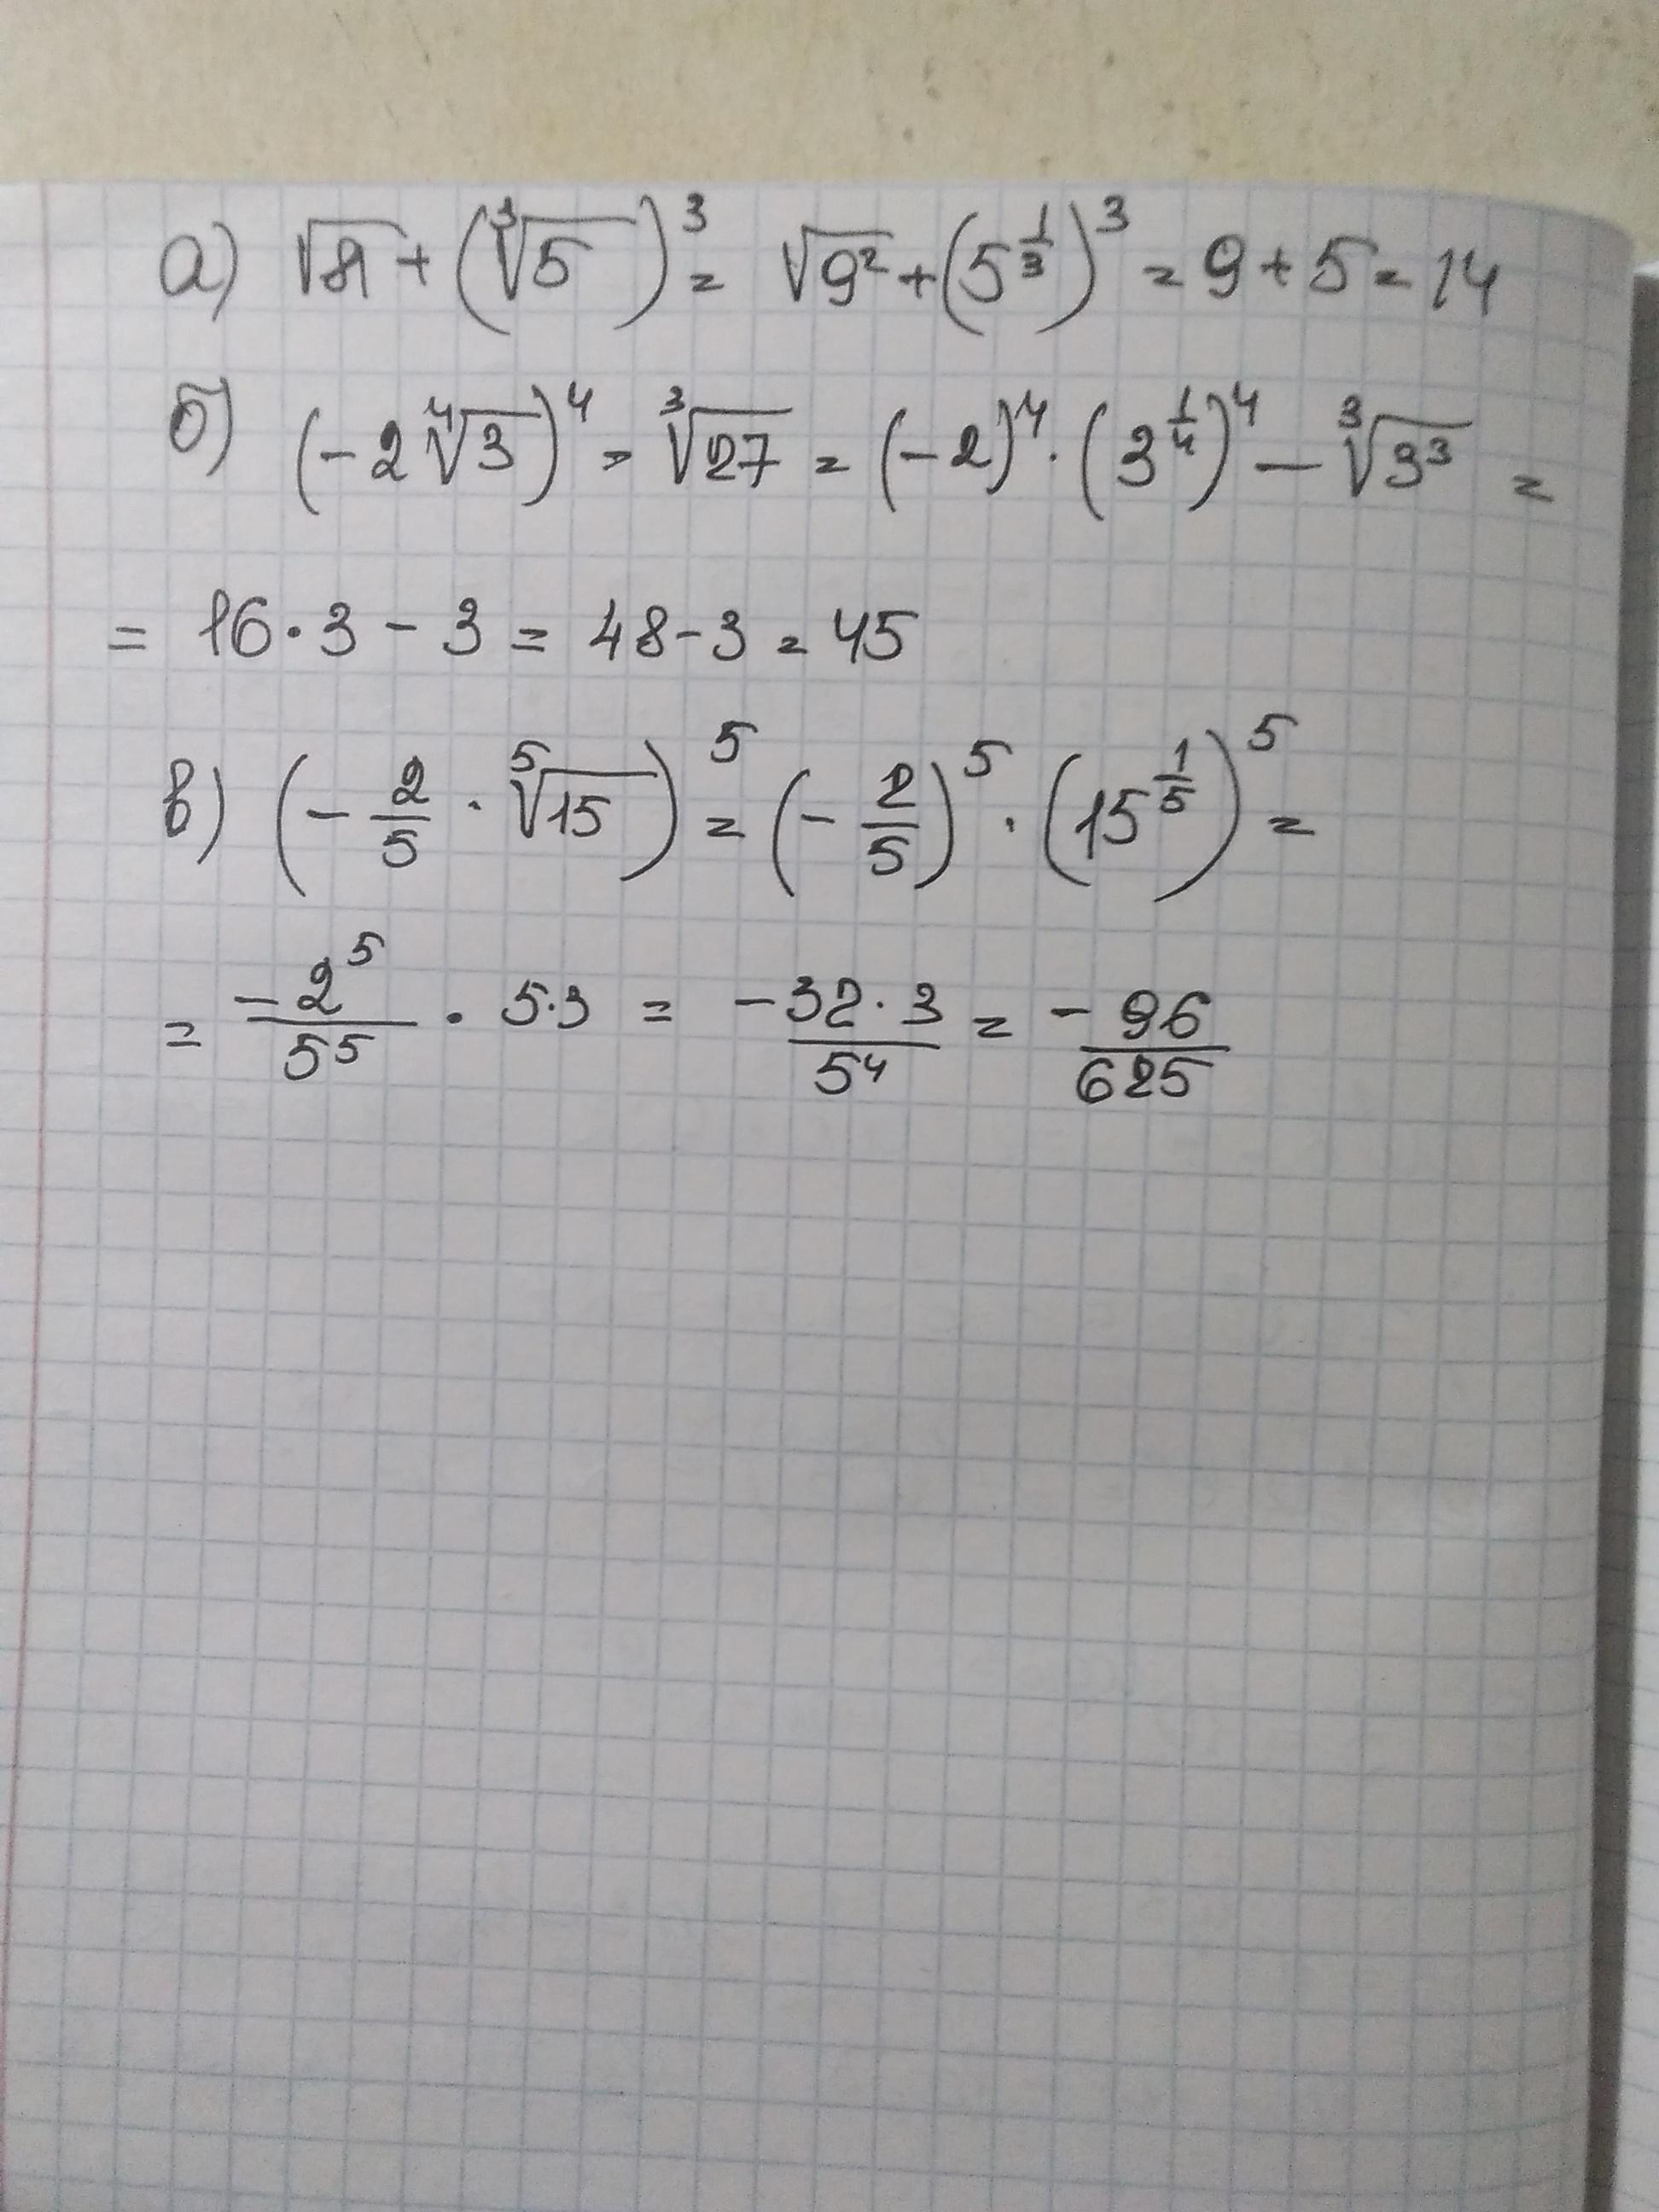 а) √81 + (∛5)³ = √9² + (5^(1/3))³ = 9 + 5 = 14
б) (-2∜3)⁴ = ∛27 = (-2)⁴ · (3^(1/4))⁴ — ∛3³ =
= 16 · 3 - 3 = 48 - 3 = 45
в) (-2/5 · ⁵√15)⁵ = (-2/5)⁵ · (15^(1/5))⁵ =
= -2⁵/5⁵ · 5·3 = -32·3/5⁴ = -96/625